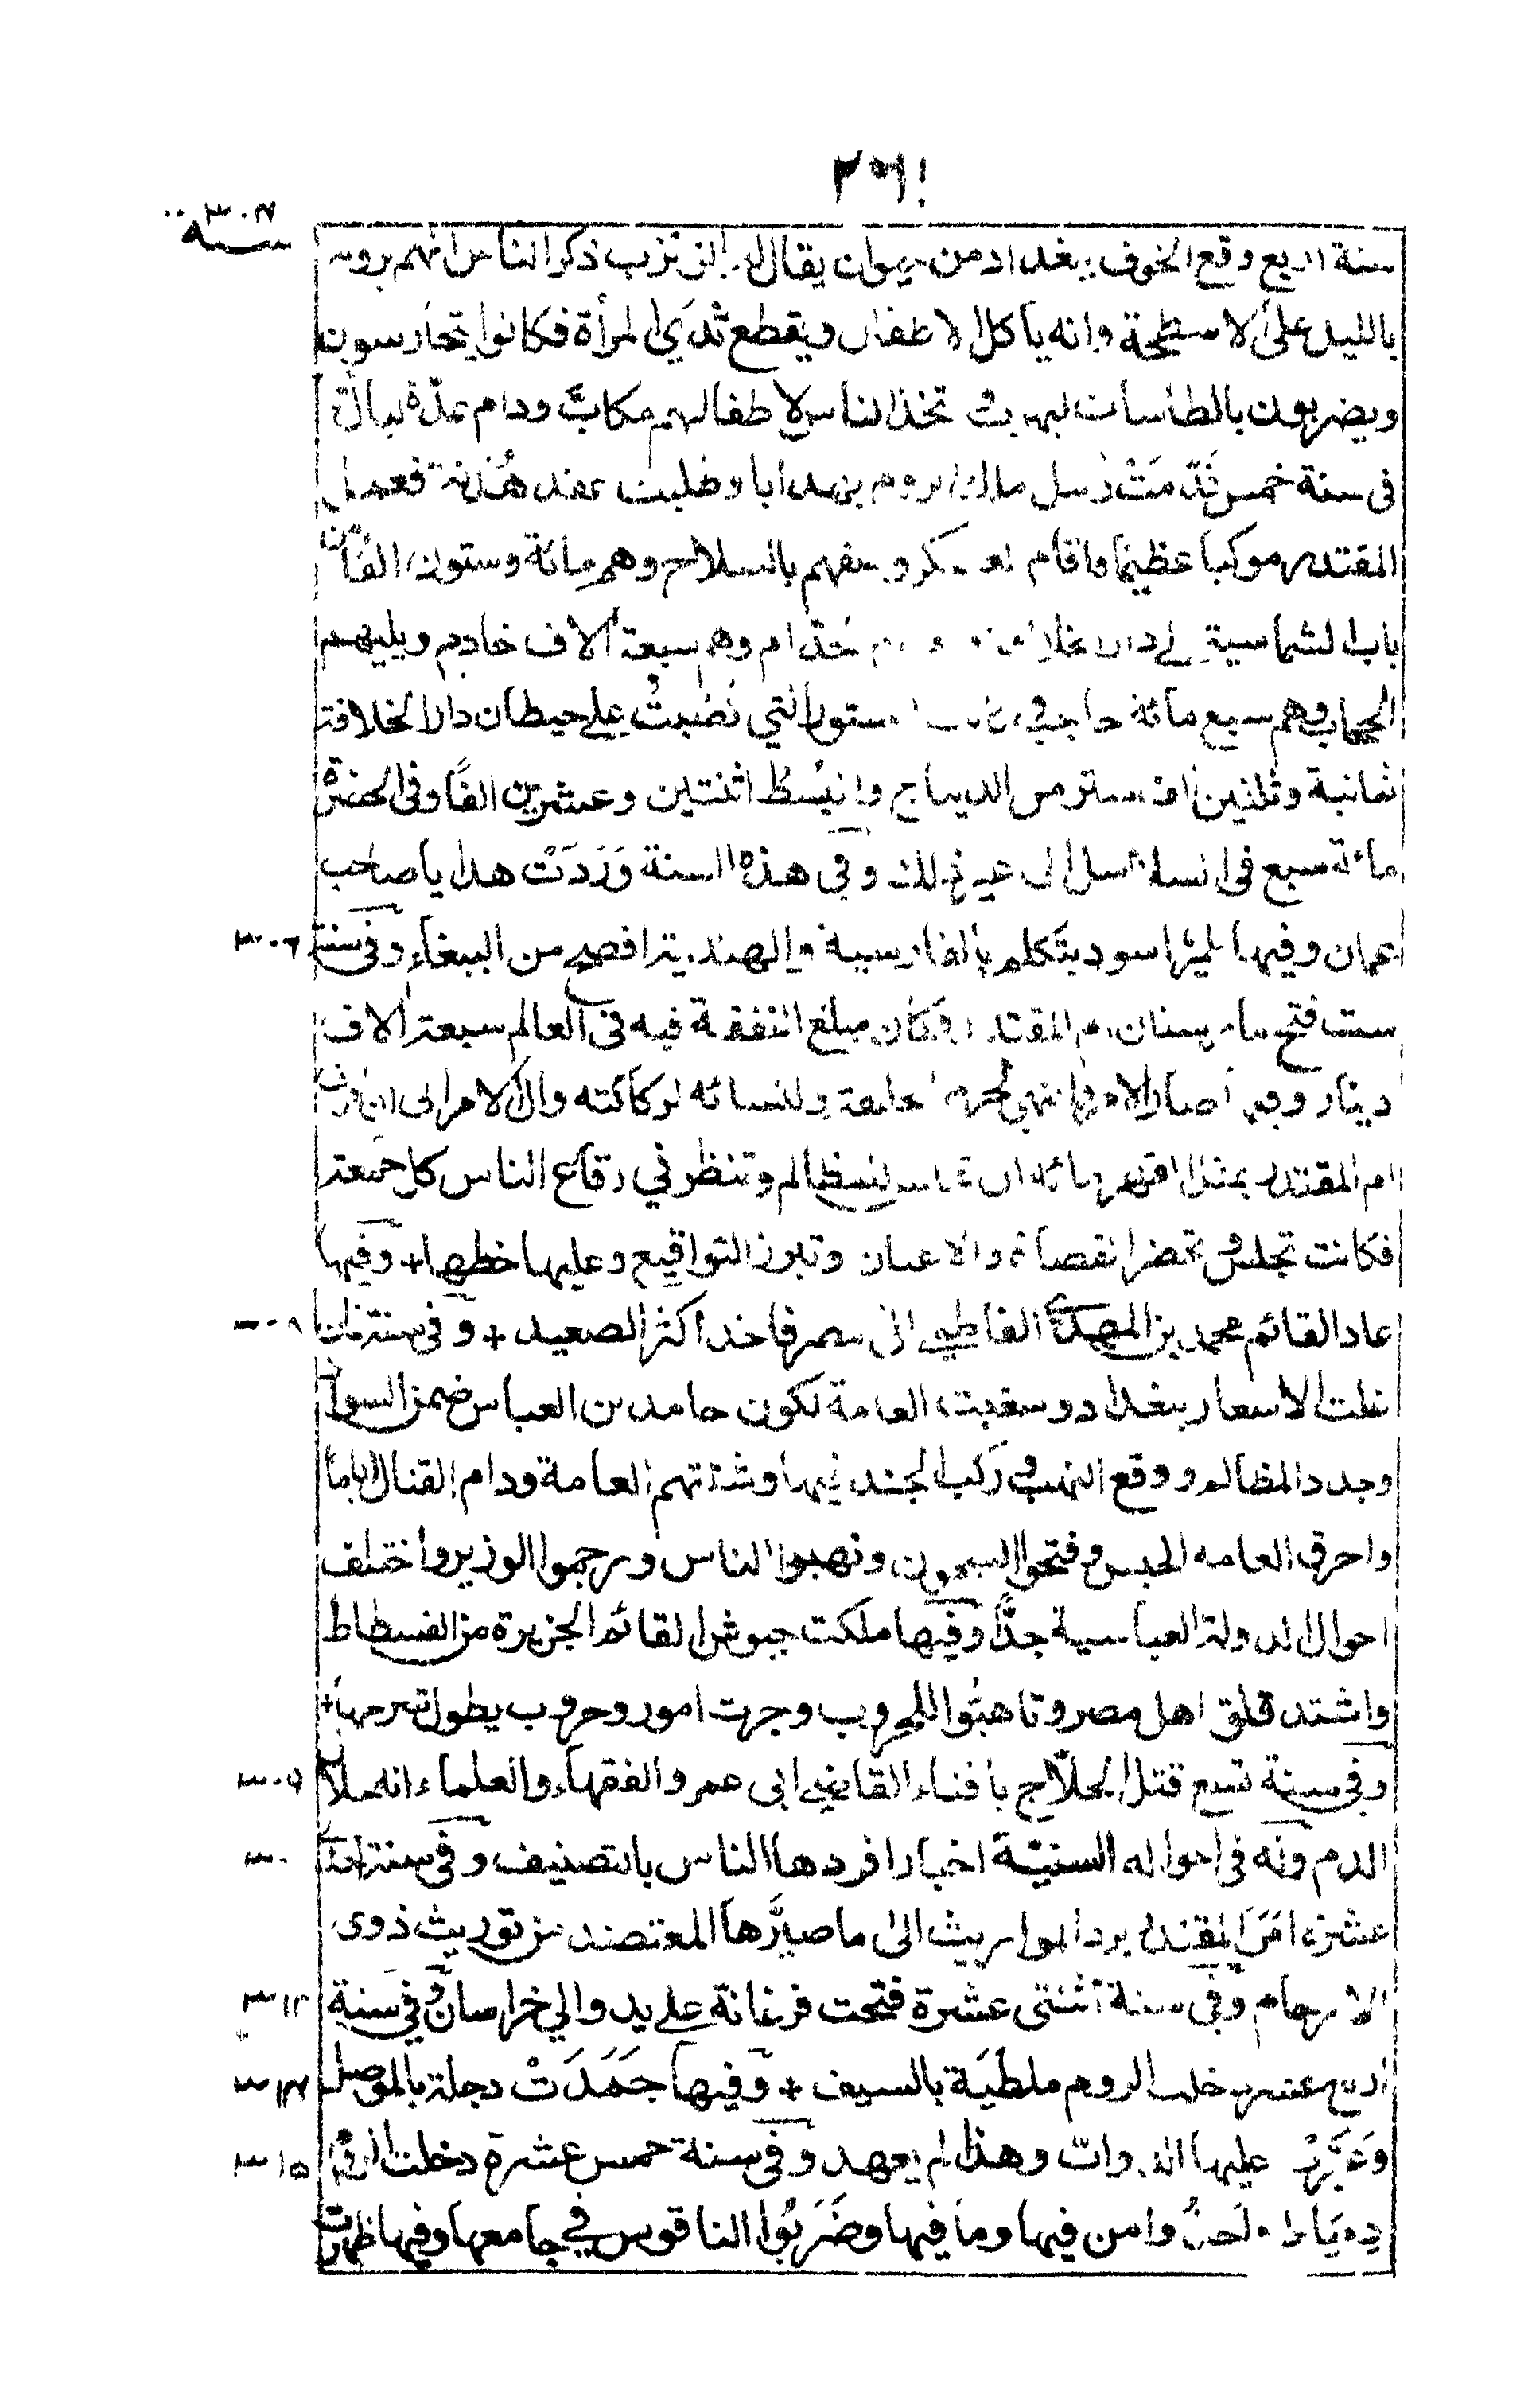 سنة
سنة اربع وقع الخوف ببغداد من حيوان يقال له الزبزب ذكر الناس انهم يرونه
بالليل على الاسطحة وانه ياكل الاطفال ويقطع ثدي المرأة فكانوا يتحارسون
ويضربون بالطاسات ليهرب تخذ الناس لاطفالهم مكابّ ودام عدة ليال
فى سنة خمس قدمت رسل ملك الروم بهدايا وطلبت عقد هدنة فعمل
المقتدر موكبا عظيما فاقام العسكر وصفهم بالسلاح وهم مائة وستون الفا من
باب الشماسية الى دار الخلافة خدام وهم سبعة آلاف خادم ويليهم
الحجاب وهم سبع مائة حاجب الستور التي نصبت على حيطان دار الخلافة
ثمانية وثلثين الف ستر من الديباج والبسط اثنتين وعشرين الفًا وفى الحضرة
مائة سبع فى السلاسل الى غير ذلك وفي هذه السنة وَرَدَتْ هدايا صاحب
عمان وفيها طير اسود يتكلم بالفارسية والهندية افصح من الببغاء وفى سنة ٣٠٦
ست فتح مارستان ام المقتدر وكان مبلغ النفقة فيه فى العالم سبعة آلاف
دينار وفيها صار الامر والنهي لحرم الخليفة ولنسائه لركاكته وآل الامر الى ان امرت
ام المقتدر بمثل القهرمانة ان تجلس للمظالم وتنظر في رقاع الناس كل جمعة
فكانت تجلس وتحضر القضاة والاعيان وتبرز التواقيع وعليها خطها + وفيها
عاد القائم محمد بن المهدي الفاطمي الى مصر فاخذ أكثر الصعيد + وفى سنة ثمان ٣٠٨
غلت الاسعار ببغداد وسغبت العامة لكون حامد بن العباس ضمن السواد
وجدد المظالم ووقع النهب وركب الجند فيها وشتتهم العامة ودام القتال اياما
واحرق العامه الحبس وفتحوا السجون ونهبوا الناس ورجموا الوزير واختلف
احوال الدولة العباسية جدًّا وفيها ملكت جيوش القائم الجزيرة من الفسطاط
واشتد قلق اهل مصر وتاهبوا للحروب وجرت امور وحروب يطول شرحها +
وفى سنة تسع قتل الحلّاج بافتاء القاضي ابى عمر والفقهاء والعلماء انه حلال ٣٠٩
الدم وله فى احواله السنيّة اخبار افردها الناس بالتصنيف وفى سنة احدى
عشرة امر المقتدر برد المواريث الى ما صيَّرها المعتضد من توريث ذوى
الارحام وفى سنة اثنتى عشرة فتحت فرغانة على يد والي خراسان وفي سنة ٣١٢
اربع عشرة دخلت الروم ملطيَة بالسيف + وفيها جَمَدَتْ دجلة بالموصل ٣١٤
وعَبَرت عليها الدواب وهذا لم يعهد وفى سنة خمس عشرة دخلت الروم ٣١٥
دمياط واخذوا من فيها وما فيها وضَرَبُوا الناقوس في جامعها وفيها ظهرت